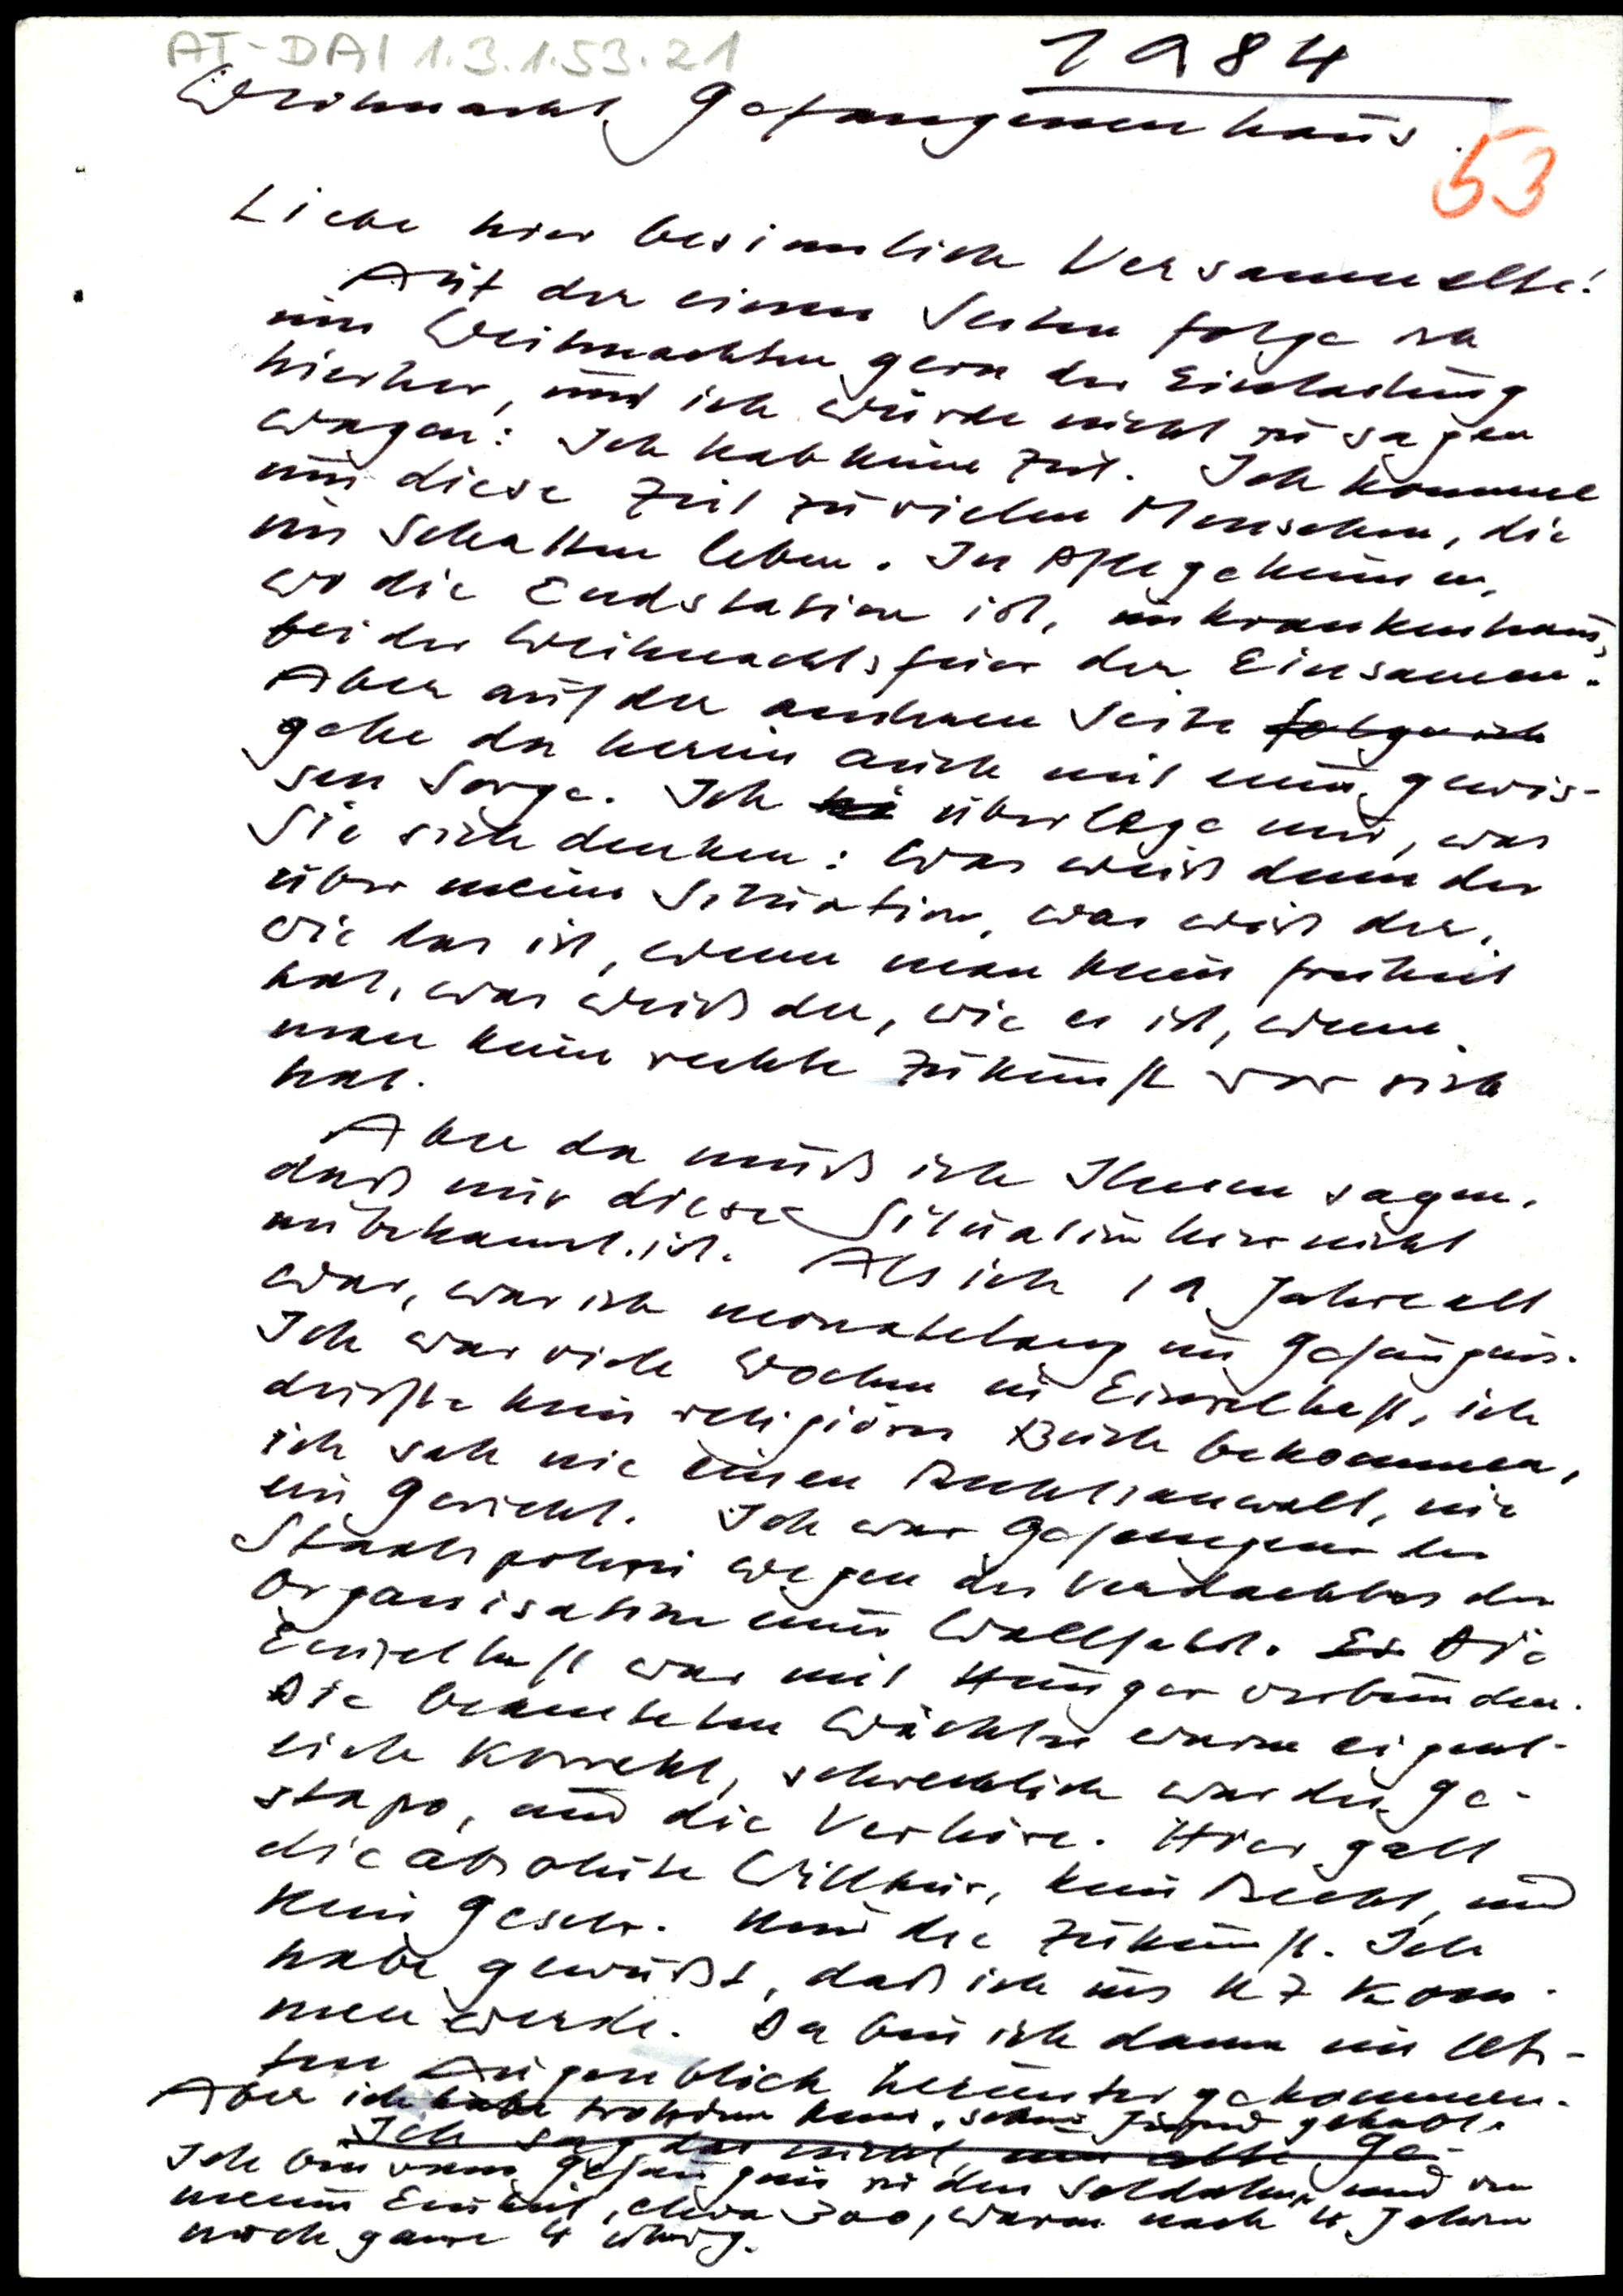 AT-DAI 1.3.1.53.21
1984
Weihnacht Gefangenenhaus.
53
Liebe hier besinnlich Versammelte!
Auf der einen Seiten folge ich
um Weihnachten gern der Einladung
hierher, und ich würde nicht zu sagen
wagen: Ich hab keine Zeit. Ich komme
um diese Zeit zu vielen Menschen, die
im Schatten leben. In Pflegeheimen,
wo die Endstation ist, im Krankenhaus,
bei der Weihnachtsfeier der Einsamen.
Aber auf der anderen Seite folge ich
gehe da herein auch mit einer gewis-
sen Sorge. Ich überlege mir, was
Sie sich denken: Was weiß denn der
über meine Situation, was weiß der,
wie das ist, wenn man keine Freiheit
hat, was weiß der, wie es ist, wenn
man keine rechte Zukunft vor sich
hat.
Aber da muß ich Ihnen sagen,
daß mir diese Situation hier nicht
unbekannt ist. Als ich 19 Jahre alt
war, war ich monatelang im Gefängnis.
Ich war viele Wochen in Einzelhaft, ich
durfte kein religiöses Buch bekommen,
ich sah nie einen Rechtsanwalt, nie
ein Gericht. Ich war Gefangener der
Staatspolizei wegen des Verdachtes der
Organisation einer Wallfahrt. Es Die
Einzelhaft war mit Hunger verbunden.
Die beamteten Wächter waren eigent-
lich korrekt, schrecklich war die Ge-
stapo, und die Verhöre. Hier galt
die absolute Willkür, kein Recht, und
kein Gesetz. Und die Zukunft. Ich
habe gewußt, daß ich ins KZ kom-
men werde. Da bin ich dann im letz-
ten Augenblick heruntergekommen.
Aber ich habe trotzdem keine schöne Jugend gehabt.
Ich sag das nicht, um alte Ge-
Ich bin vom Gefängnis zu den Soldaten und von
meiner Einheit, etwa 300, waren nach 4 Jahren
noch ganze 4 übrig.